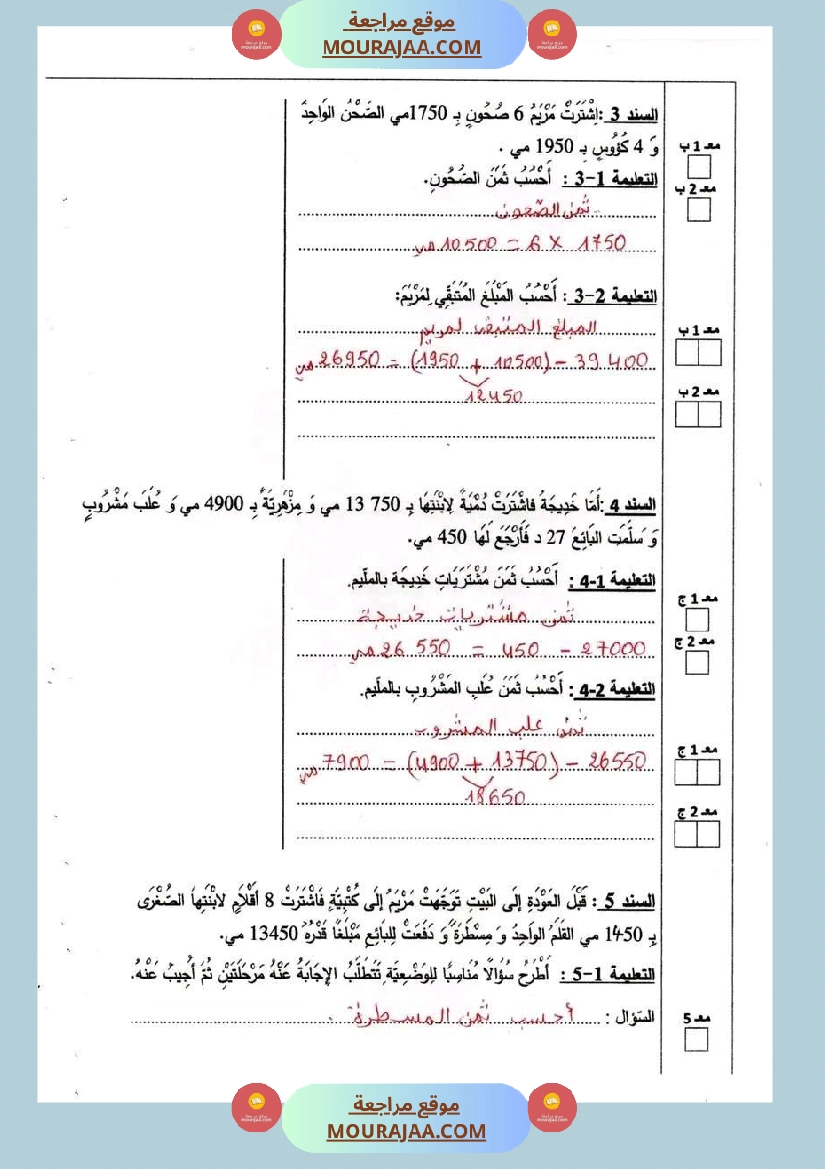 موقع مراجعة
MOURAJAA.COM
السند 3 :اِشْتَرَتْ مَرْيَمُ 6 صُحُونٍ بِـ 1750مي الصَّحْنُ الوَاحِدُ
وَ 4 كُؤُوسٍ بِـ 1950 مي .
معـ 1 ب
التعليمة 1-3 : أَحْسُبُ ثَمَنَ الصُّحُونِ.
معـ 2 ب
ثمن الصّحون
1750 × 6 = 10500 مي
التعليمة 2-3 : أَحْسُبُ المَبْلَغَ المُتَبَقِّي لِمَرْيَمَ:
المبلغ المتبقي لمريم
معـ 1 ب
39 400 - (10500 + 1950) = 26950 مي
12450
معـ 2 ب
السند 4 :أَمَّا خَدِيجَةُ فاشْتَرَتْ دُمْيَةً لِابْنَتِهَا بِـ 750 13 مي وَ مِزْهَرِيَّةً بِـ 4900 مي وَ عُلَبَ مَشْرُوبٍ
وَ سَلَّمَت البَائِعُ 27 د فَأَرْجَعَ لَهَا 450 مي.
التعليمة 1-4 : أَحْسُبُ ثَمَنَ مُشْتَرَيَاتِ خَدِيجَة بالملّيم.
معـ 1 ج
ثمن مشتريات خديجة
معـ 2 ج
27000 - 450 = 26 550 مي
التعليمة 2-4 : أَحْسُبُ ثَمَنَ عُلَبِ المَشْرُوبِ بالملّيم.
ثمن علب المشروب
معـ 1 ج
26550 - (13750 + 4900) = 7900 مي
18650
معـ 2 ج
السند 5 : قَبْلَ العَوْدَةِ إِلَى البَيْتِ تَوَجَّهَتْ مَرْيَمُ إِلَى كُتْبِيَّةٍ فَاشْتَرَتْ 8 أَقْلَامٍ لابْنَتِهَا الصُّغْرَى
بِـ 1450 مي القَلَمُ الوَاحِدُ وَ مِسْطَرَةً وَ دَفَعَتْ لِلبَائِعِ مَبْلَغًا قَدْرُهُ 13450 مي.
التعليمة 1-5 : أَطْرَحُ سُؤَالًا مُنَاسِبًا لِلوَضْعِيَّةِ تَتَطَلَّبُ الإِجَابَةُ عَنْهُ مَرْحَلَتَيْنِ ثُمَّ أُجِيبُ عَنْهُ.
السّؤال : أحسب ثمن المسطرة .
معـ 5
موقع مراجعة
MOURAJAA.COM